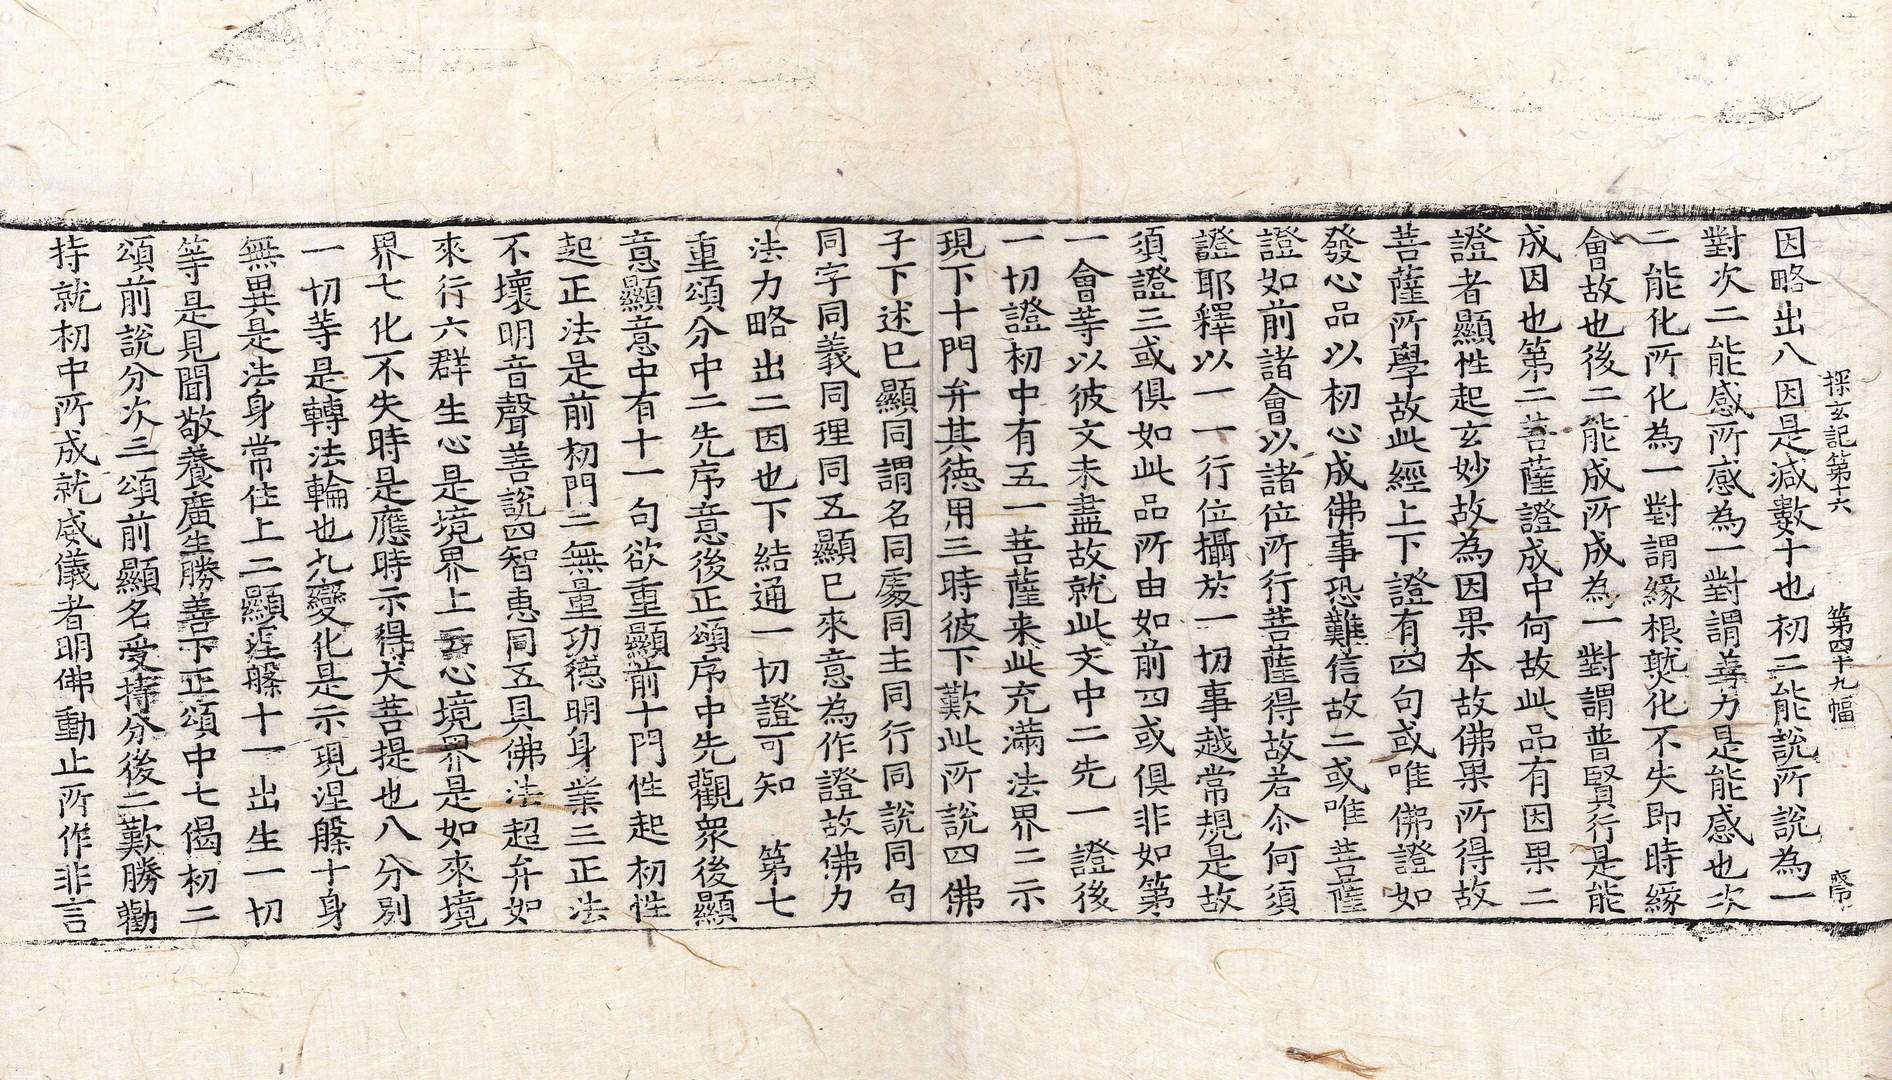 探玄記第十六 第四十九幅
因略出八因是減數十也初二能說所說為一
對次二能感所感為一對謂善力是能感也次
二能化所化為一對謂緣根熟化不失即時緣
會故也後二能成所成為一對謂普賢行是能
成因也第二菩薩證成中何故此品有因果二
證者顯性起玄妙故為因果本故佛果所得故
菩薩所學故此經上下證有四句或唯佛證如
發心品以初心成佛事恐難信故二或唯菩薩
證如前諸會以諸位所行菩薩得故若尒何須
證耶釋以一一行位攝於一切事越常規是故
須證三或俱如此品所由如前四或俱非如第
一會等以彼文未盡故就此文中二先一證後
一切證初中有五一菩薩来此充滿法界二示
現下十門弁其德用三時彼下歎此所說四佛
子下述已顯同謂名同處同主同行同說同句
同字同義同理同五顯已來意為作證故佛力
法力略出二因也下結通一切證可知 第七
重頌分中二先序意後正頌序中先觀衆後顯
意顯意中有十一句欲重顯前十門性起初性
起正法是前初門二無量功德明身業三正法
不壞明音聲善說四智惠同五具佛法超弁如
來行六群生心是境界上五心境界是如來境
界七化不失時是應時示得大菩提也八分別
一切等是轉法輪也九變化是示現涅槃十身
無異是法身常住上二顯涅槃十一出生一切
等是見聞敬養廣生勝善下正頌中七偈初二
頌前說分次三頌前顯名受持分後二歎勝勸
持就初中所成就威儀者明佛動止所作非言